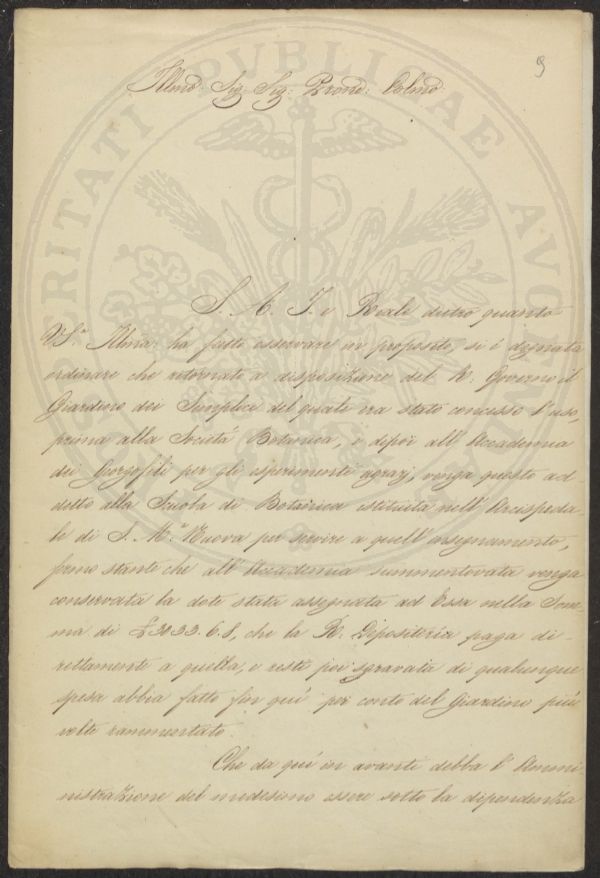 9
Illmo: Sig: Sig: Prone: Colmo:
S. A. I. e Reale dietro quanto
V.S.ª Illma: ha fatto osservare in proposito, si è degnata
ordinare che ritornato a disposizione del R. Governo il
Giardino dei Semplici del quale era stato concesso l'uso,
prima alla Società Botanica, e dipoi all'Accademia
dei Georgofili per gli esperimenti agrarj, venga questo ad-
detto alla Scuola di Botanica istituita nell'Arcispeda-
le di S. M.ª Nuova per servire a quell'insegnamento,
fermo stante che all'Accademia summentovata venga
conservata la dote stata assegnata ad Essa nella Som-
ma di £ 3033.6.8, che la R. Depositeria paga di-
rettamente a quella, e resti poi sgravata di qualunque
spesa abbia fatto fin quì per conto del Giardino più
volte rammentato.
Che da quì in avanti debba l'Ammi-
nistrazione del medesimo essere sotto la dipendenza
PVBLICAE